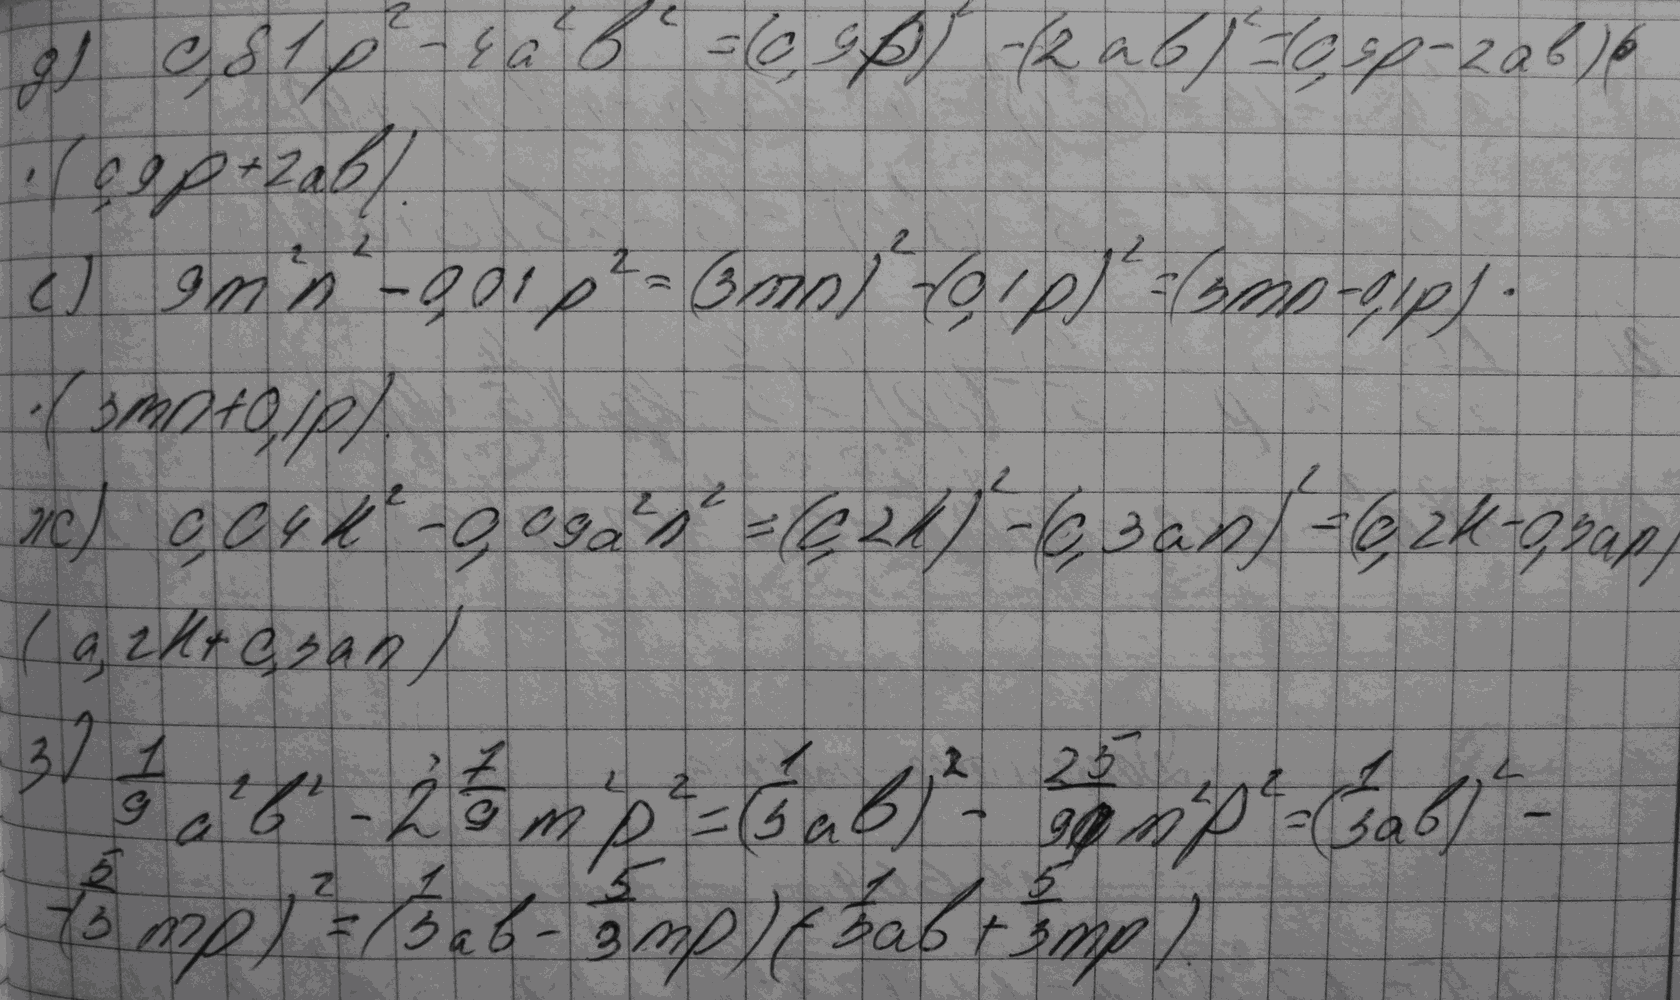 д) 0,81p² - 4a²b² = (0,9p)² - (2ab)² = (0,9p - 2ab)(
· (0,9p + 2ab).
е) 9m²n² - 0,01p² = (3mn)² - (0,1p)² = (3mn - 0,1p) ·
· (3mn + 0,1p).
ж) 0,04k² - 0,09a²n² = (0,2k)² - (0,3an)² = (0,2k - 0,3an)
(0,2k + 0,3an)
з) 1/9 a²b² - 2 7/9 m²p² = (1/3 ab)² - 25/9 m²p² = (1/3 ab)² -
- (5/3 mp)² = (1/3 ab - 5/3 mp)(1/3 ab + 5/3 mp).